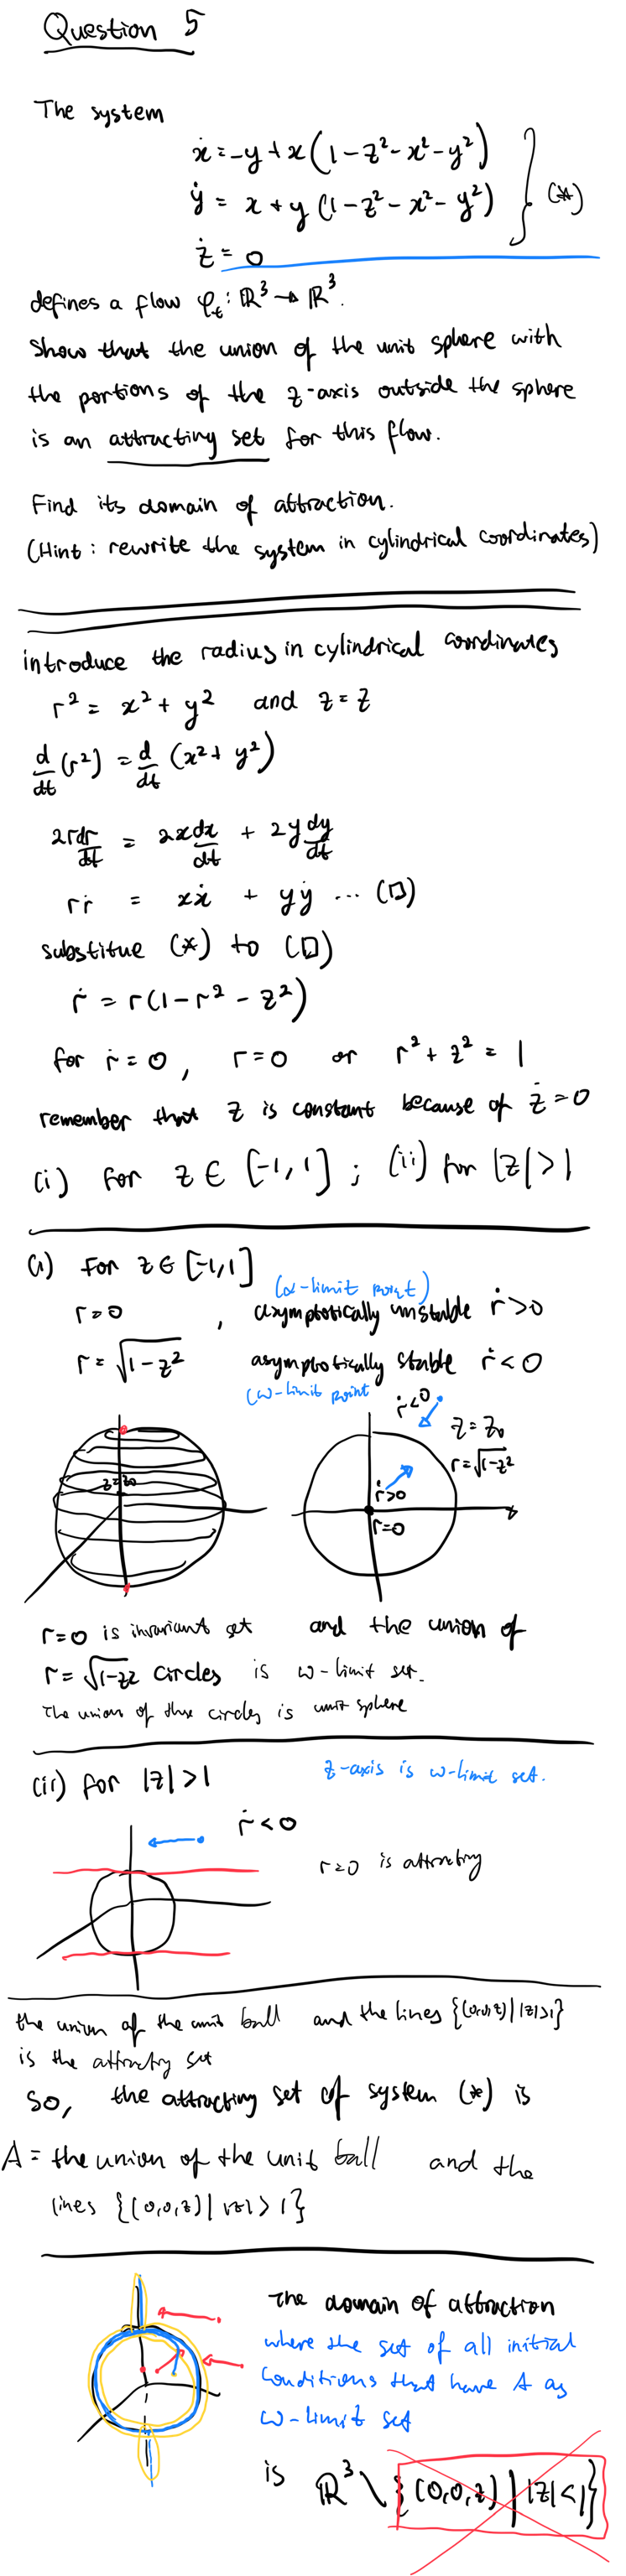 Question 5
The system
ẋ = -y + x(1 - z² - x² - y²)
ẏ = x + y (1 - z² - x² - y²) } (*)
ż = 0
defines a flow φ_t : ℝ³ → ℝ³.
Show that the union of the unit sphere with
the portions of the z-axis outside the sphere
is an attracting set for this flow.
Find its domain of attraction.
(Hint : rewrite the system in cylindrical coordinates)
introduce the radius in cylindrical coordinates
r² = x² + y² and z = z
d/dt (r²) = d/dt (x² + y²)
2r dr/dt = 2x dx/dt + 2y dy/dt
rṙ = xẋ + yẏ ... (□)
substitue (*) to (□)
ṙ = r(1 - r² - z²)
for ṙ = 0, r = 0 or r² + z² = 1
remember that z is constant because of ż = 0
(i) for z ∈ [-1, 1] ; (ii) for |z| > 1
(i) for z ∈ [-1, 1]
(α-limit point)
r = 0 , asymptotically unstable ṙ > 0
r = √(1 - z²) asymptotically stable ṙ < 0
(ω-limit point
ṙ < 0
z = z₀
r = √(1 - z²)
z = z₀
ṙ > 0
r = 0
r = 0 is invariant set and the union of
r = √1-z² circles is ω-limit set.
The union of these circles is unit sphere
(ii) for |z| > 1
z-axis is ω-limit set.
ṙ < 0
r = 0 is attracting
the union of the unit ball and the lines {(0,0,z) | |z| > 1}
is the attracting set
So, the attracting set of system (*) is
A = the union of the unit ball and the
lines {(0,0,z) | |z| > 1}
The domain of attraction
where the set of all initial
conditions that have A as
ω-limit set
is ℝ³ \ {(0,0,z) | |z| < 1}